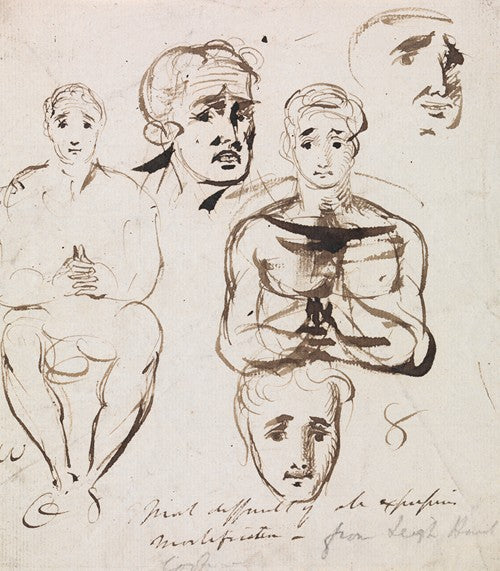 Most difficult of all expression
Mortification – from Leigh Hunt